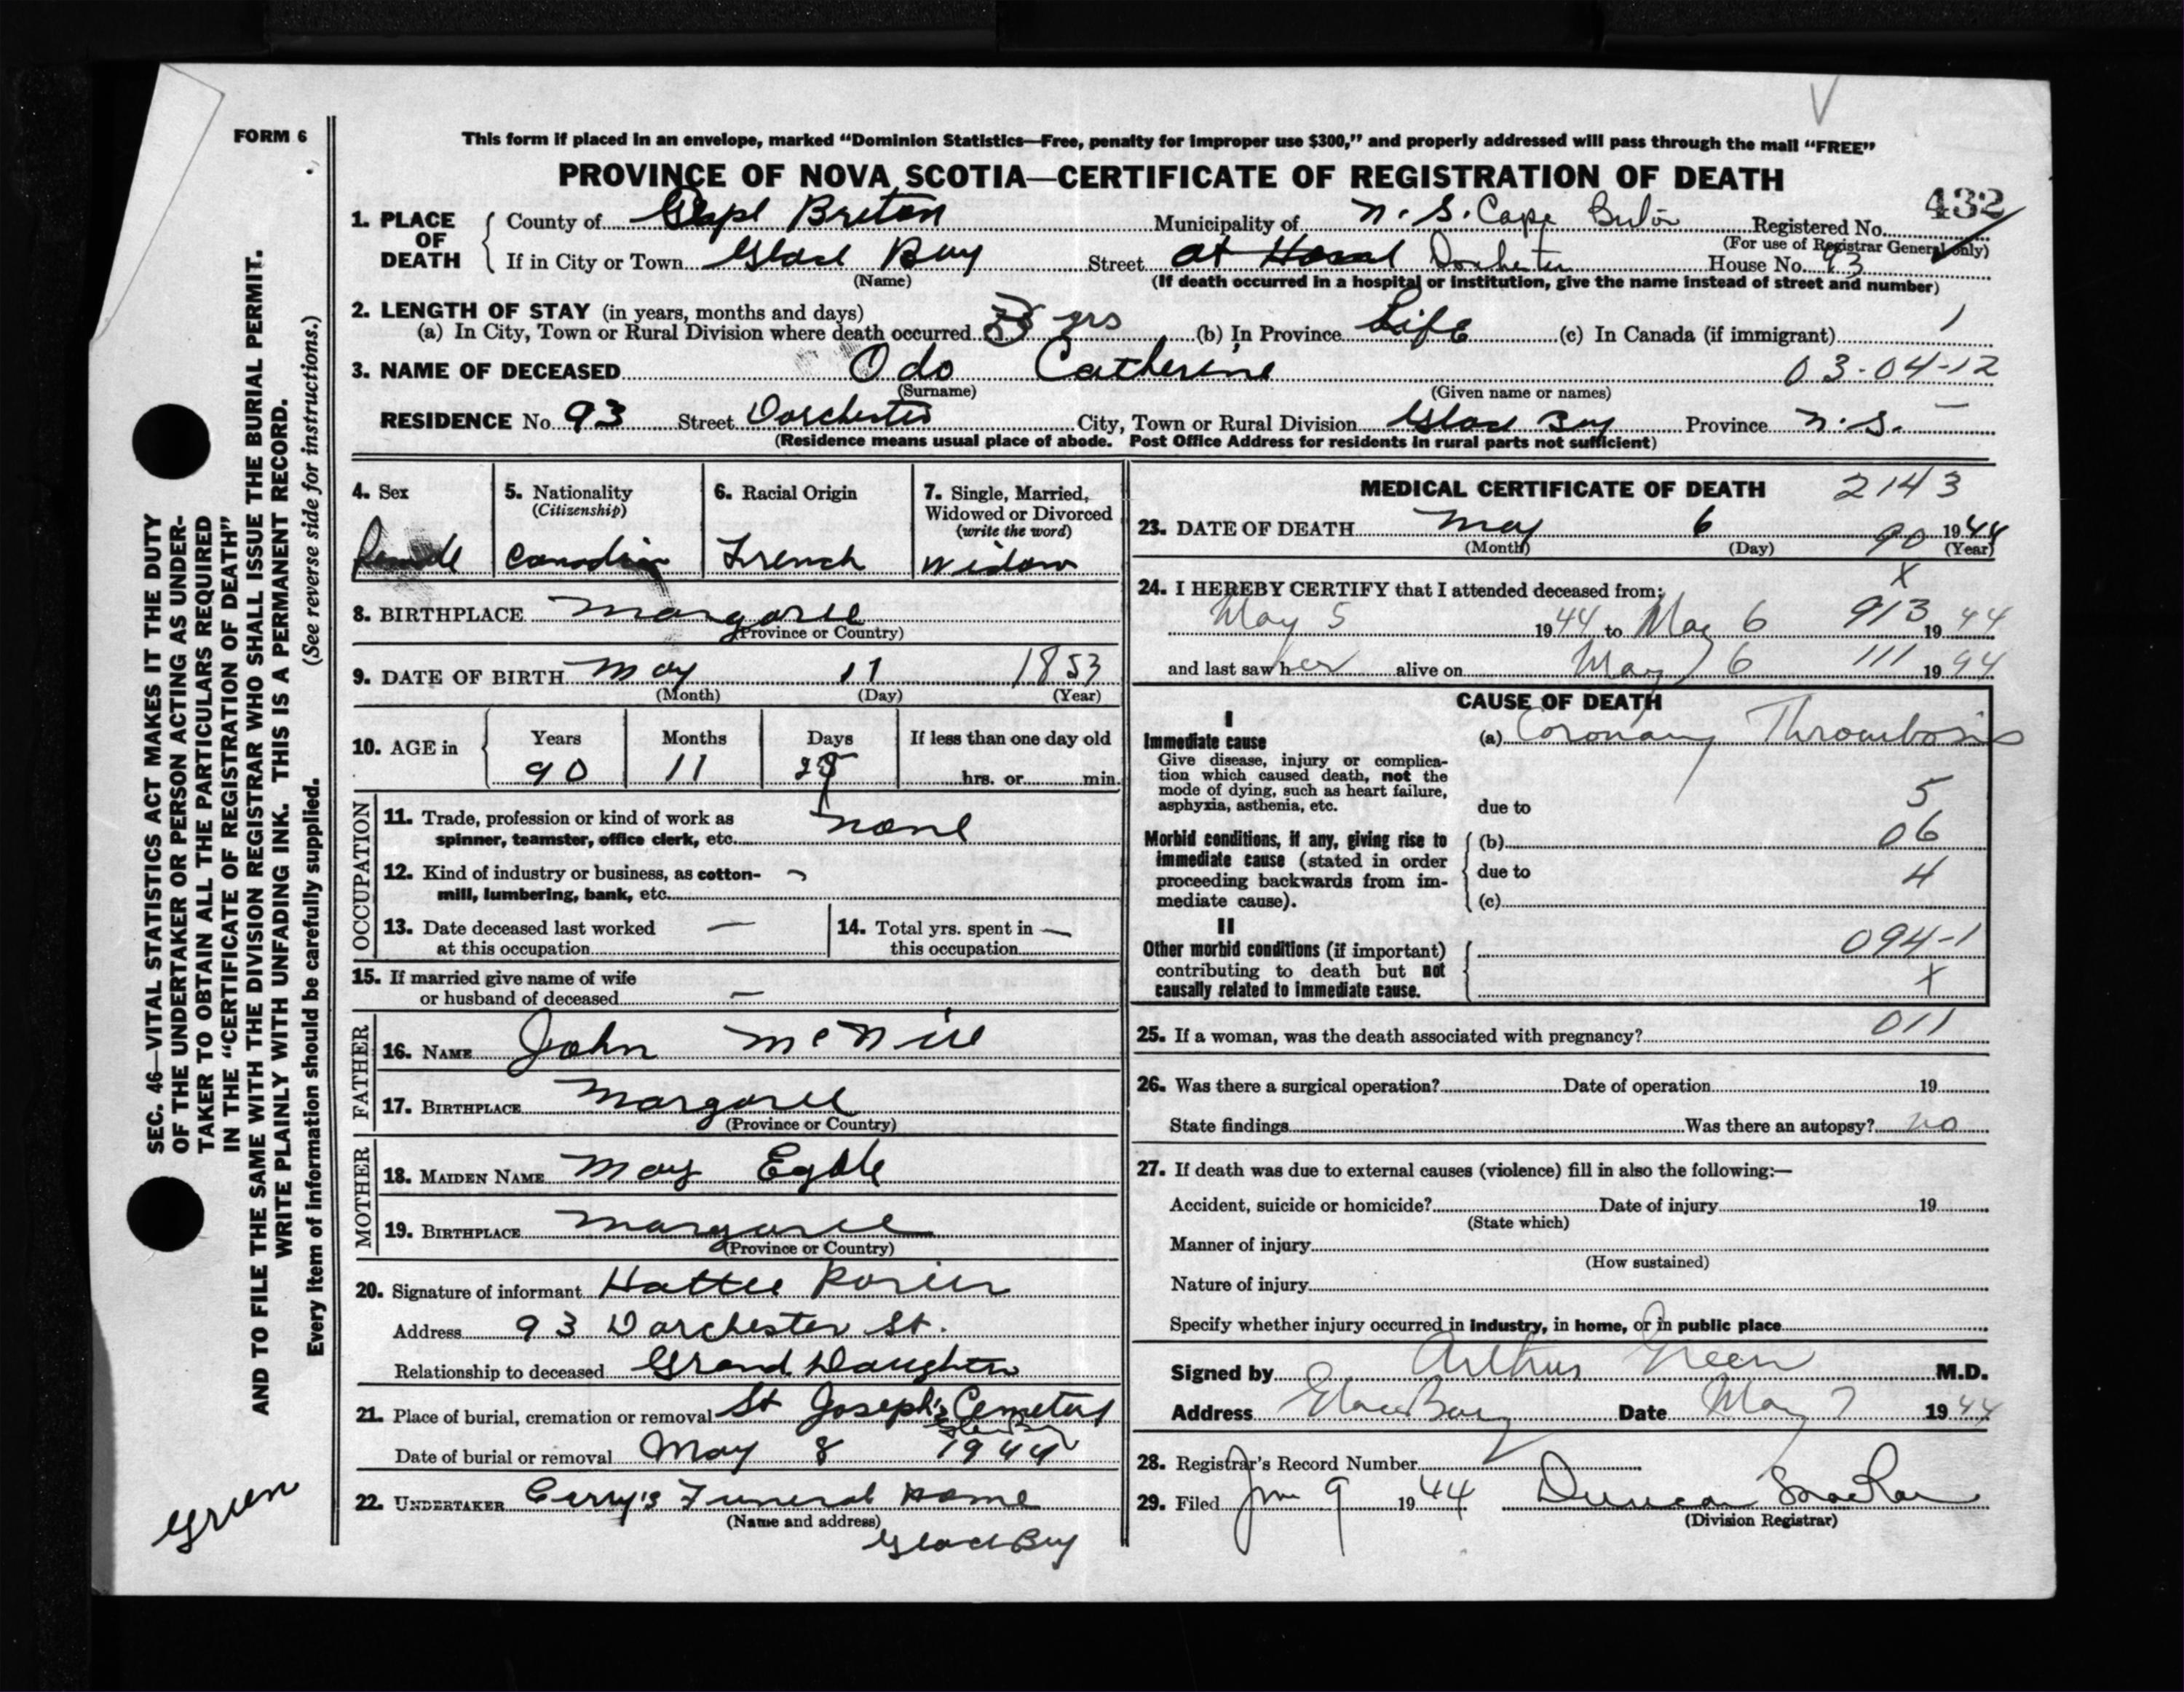 FORM 6
This form if placed in an envelope, marked “Dominion Statistics—Free, penalty for improper use $300,” and properly addressed will pass through the mail “FREE”
PROVINCE OF NOVA SCOTIA—CERTIFICATE OF REGISTRATION OF DEATH
432
1. PLACE OF DEATH
County of Cape Breton Municipality of N.S. Cape Breton Registered No.
(For use of Registrar General only)
If in City or Town Glace Bay Street At Home Dorchester House No. 93
(Name) (If death occurred in a hospital or institution, give the name instead of street and number)
2. LENGTH OF STAY (in years, months and days)
(a) In City, Town or Rural Division where death occurred yrs (b) In Province Life (c) In Canada (if immigrant) 1
3. NAME OF DECEASED Odo Catherine 03-04-12
(Surname) (Given name or names)
RESIDENCE No. 93 Street Dorchester City, Town or Rural Division Glace Bay Province N.S.
(Residence means usual place of abode. Post Office Address for residents in rural parts not sufficient)
4. Sex
Female
5. Nationality
(Citizenship)
Canadian
6. Racial Origin
French
7. Single, Married,
Widowed or Divorced
(write the word)
Widow
8. BIRTHPLACE Margaree
(Province or Country)
9. DATE OF BIRTH May 11 1853
(Month) (Day) (Year)
10. AGE in
Years Months Days If less than one day old
90 11 25 hrs. or min.
OCCUPATION
11. Trade, profession or kind of work as
spinner, teamster, office clerk, etc. none
12. Kind of industry or business, as cotton-
mill, lumbering, bank, etc.
13. Date deceased last worked —
at this occupation
14. Total yrs. spent in —
this occupation
15. If married give name of wife
or husband of deceased —
FATHER
16. NAME John McNeil
17. BIRTHPLACE Margaree
(Province or Country)
MOTHER
18. MAIDEN NAME May
19. BIRTHPLACE Margaree
(Province or Country)
20. Signature of informant Hattie
Address 93 Dorchester St.
Relationship to deceased Grand Daughter
21. Place of burial, cremation or removal St Joseph's Cemetery
Date of burial or removal May 8 1944
22. UNDERTAKER Curry's Funeral Home
(Name and address)
Glace Bay
MEDICAL CERTIFICATE OF DEATH 2143
23. DATE OF DEATH May 6 1944
(Month) (Day) 90 (Year)
x
24. I HEREBY CERTIFY that I attended deceased from:
May 5 1944 to May 6 913 1944
and last saw her alive on May 6 111 1944
CAUSE OF DEATH
I
Immediate cause
Give disease, injury or complica-
tion which caused death, not the
mode of dying, such as heart failure,
asphyxia, asthenia, etc.
(a) Coronary Thrombosis
5
due to
Morbid conditions, if any, giving rise to
immediate cause (stated in order
proceeding backwards from im-
mediate cause).
(b) 06
due to 4
(c)
II
Other morbid conditions (if important)
contributing to death but not
causally related to immediate cause.
094-1
x
25. If a woman, was the death associated with pregnancy? 011
26. Was there a surgical operation? Date of operation 19
State findings Was there an autopsy? no
27. If death was due to external causes (violence) fill in also the following:—
Accident, suicide or homicide? Date of injury 19
(State which)
Manner of injury
(How sustained)
Nature of injury
Specify whether injury occurred in industry, in home, or in public place
Signed by Arthur Green M.D.
Address Glace Bay Date May 7 1944
28. Registrar's Record Number
29. Filed 9 1944 Duncan
(Division Registrar)
SEC. 46—VITAL STATISTICS ACT MAKES IT THE DUTY
OF THE UNDERTAKER OR PERSON ACTING AS UNDER-
TAKER TO OBTAIN ALL THE PARTICULARS REQUIRED
IN THE “CERTIFICATE OF REGISTRATION OF DEATH”
AND TO FILE THE SAME WITH THE DIVISION REGISTRAR WHO SHALL ISSUE THE BURIAL PERMIT.
WRITE PLAINLY WITH UNFADING INK. THIS IS A PERMANENT RECORD.
Every item of information should be carefully supplied. (See reverse side for instructions.)
Green